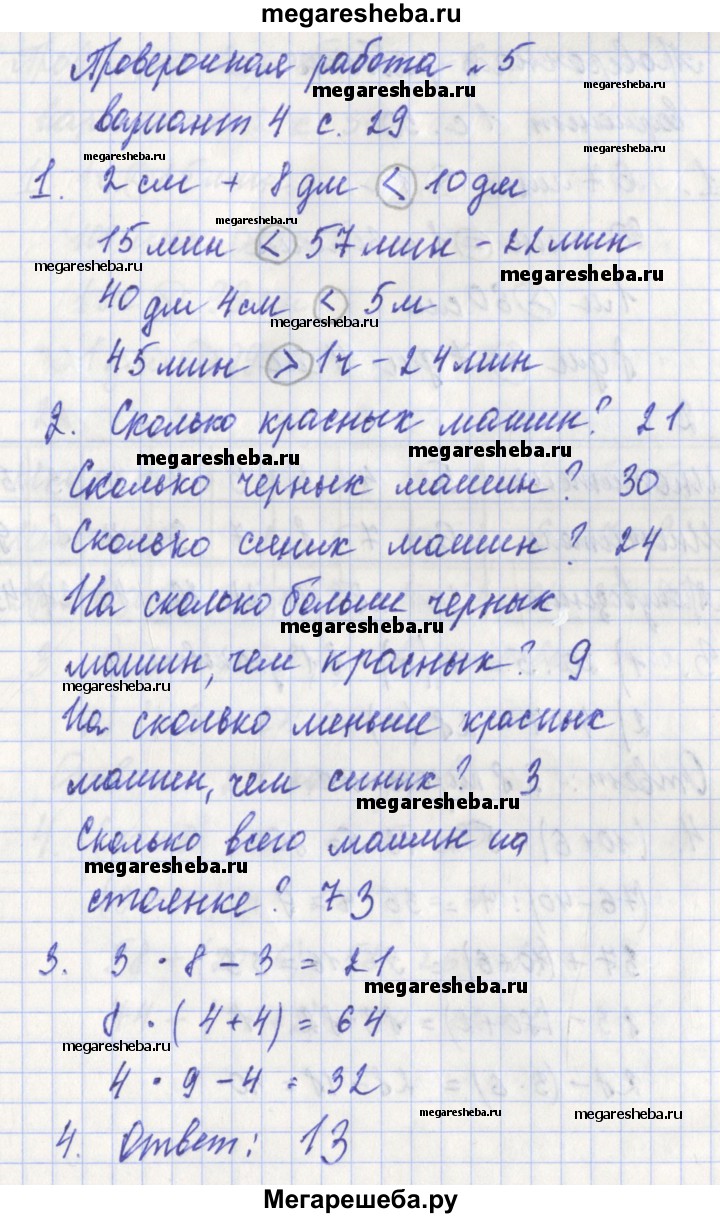 megaresheba.ru
Проверочная работа № 5
megaresheba.ru
megaresheba.ru
вариант 4 с. 29
megaresheba.ru
1. 2 см + 8 дм < 10 дм
megaresheba.ru
15 мин < 57 мин - 22 мин
megaresheba.ru
megaresheba.ru
40 дм 4 см < 5 м
megaresheba.ru
45 мин > 1 ч - 24 мин
2. Сколько красных машин? 21
megaresheba.ru
megaresheba.ru
Сколько черных машин? 30
Сколько синих машин? 24
На сколько больше черных
megaresheba.ru
машин, чем красных? 9
megaresheba.ru
На сколько меньше красных
машин, чем синих? 3
megaresheba.ru
Сколько всего машин на
megaresheba.ru
стоянке? 73
3. 3 · 8 - 3 = 21
megaresheba.ru
8 · (4+4) = 64
megaresheba.ru
4 · 9 - 4 = 32
megaresheba.ru
megaresheba.ru
4. Ответ: 13
Мегарешеба.ру